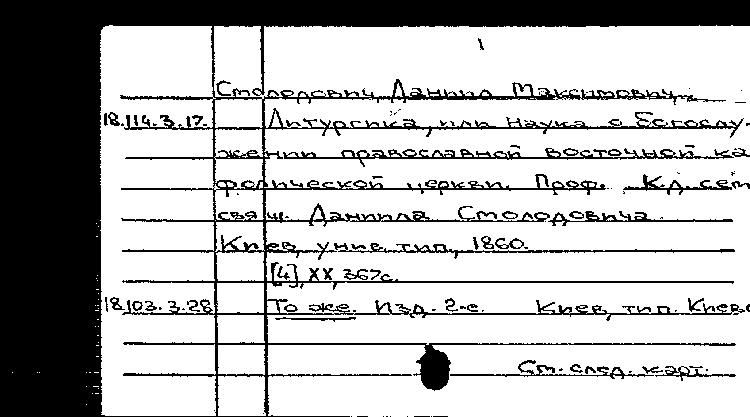 1
Столодович, Даниил Максимович.
18.114.3.17. Литургика, или наука о богослу-
жении православной восточной ка
фолической церкви. Проф. К.д. сем
свящ. Даниила Столодовича.
Киев, унив. тип., 1860.
[4], XX, 367с.
18.103.3.28 То же. Изд. 2-е. Киев, тип. Киево
См. след. карт.